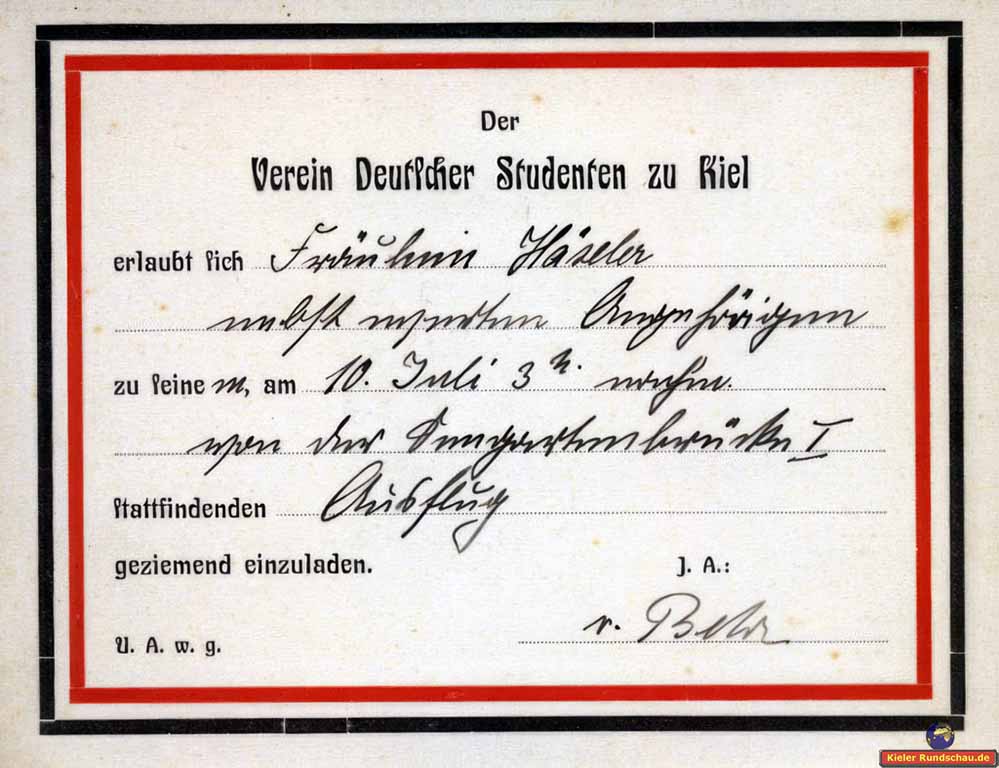 Der
Verein Deutscher Studenten zu Kiel
erlaubt sich Fräulein Häseler
nebst werten Angehörigen
zu seinem, am 10. Juli 3 h. nachm.
von der Seegartenbrücke I
stattfindenden Ausflug
geziemend einzuladen.
J. A.:
v. Behr
U. A. w. g.
Kieler Rundschau.de